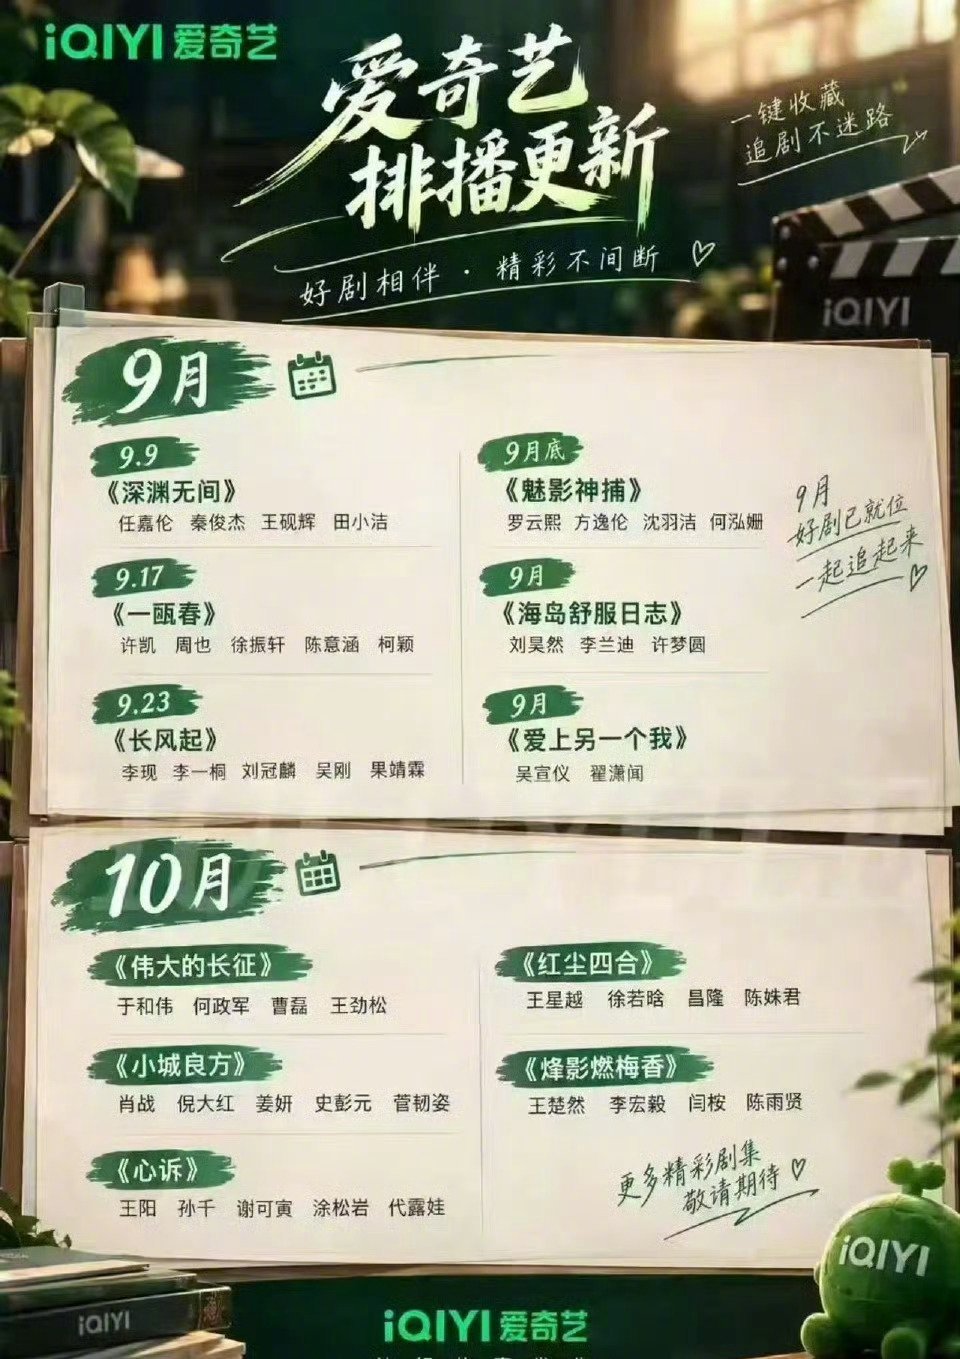 iQIYI 爱奇艺
爱奇艺
排播更新
一键收藏
追剧不迷路
好剧相伴·精彩不间断
iQIYI
9月
9.9
《深渊无间》
任嘉伦 秦俊杰 王砚辉 田小洁
9.17
《一瓯春》
许凯 周也 徐振轩 陈意涵 柯颖
9.23
《长风起》
李现 李一桐 刘冠麟 吴刚 果靖霖
9月底
《魅影神捕》
罗云熙 方逸伦 沈羽洁 何泓姗
9月
《海岛舒服日志》
刘昊然 李兰迪 许梦圆
9月
《爱上另一个我》
吴宣仪 翟潇闻
9月
好剧已就位
一起追起来
10月
《伟大的长征》
于和伟 何政军 曹磊 王劲松
《小城良方》
肖战 倪大红 姜妍 史彭元 菅韧姿
《心诉》
王阳 孙千 谢可寅 涂松岩 代露娃
《红尘四合》
王星越 徐若晗 昌隆 陈姝君
《烽影燃梅香》
王楚然 李宏毅 闫桉 陈雨贤
更多精彩剧集
敬请期待
iQIYI
iQIYI
iQIYI 爱奇艺